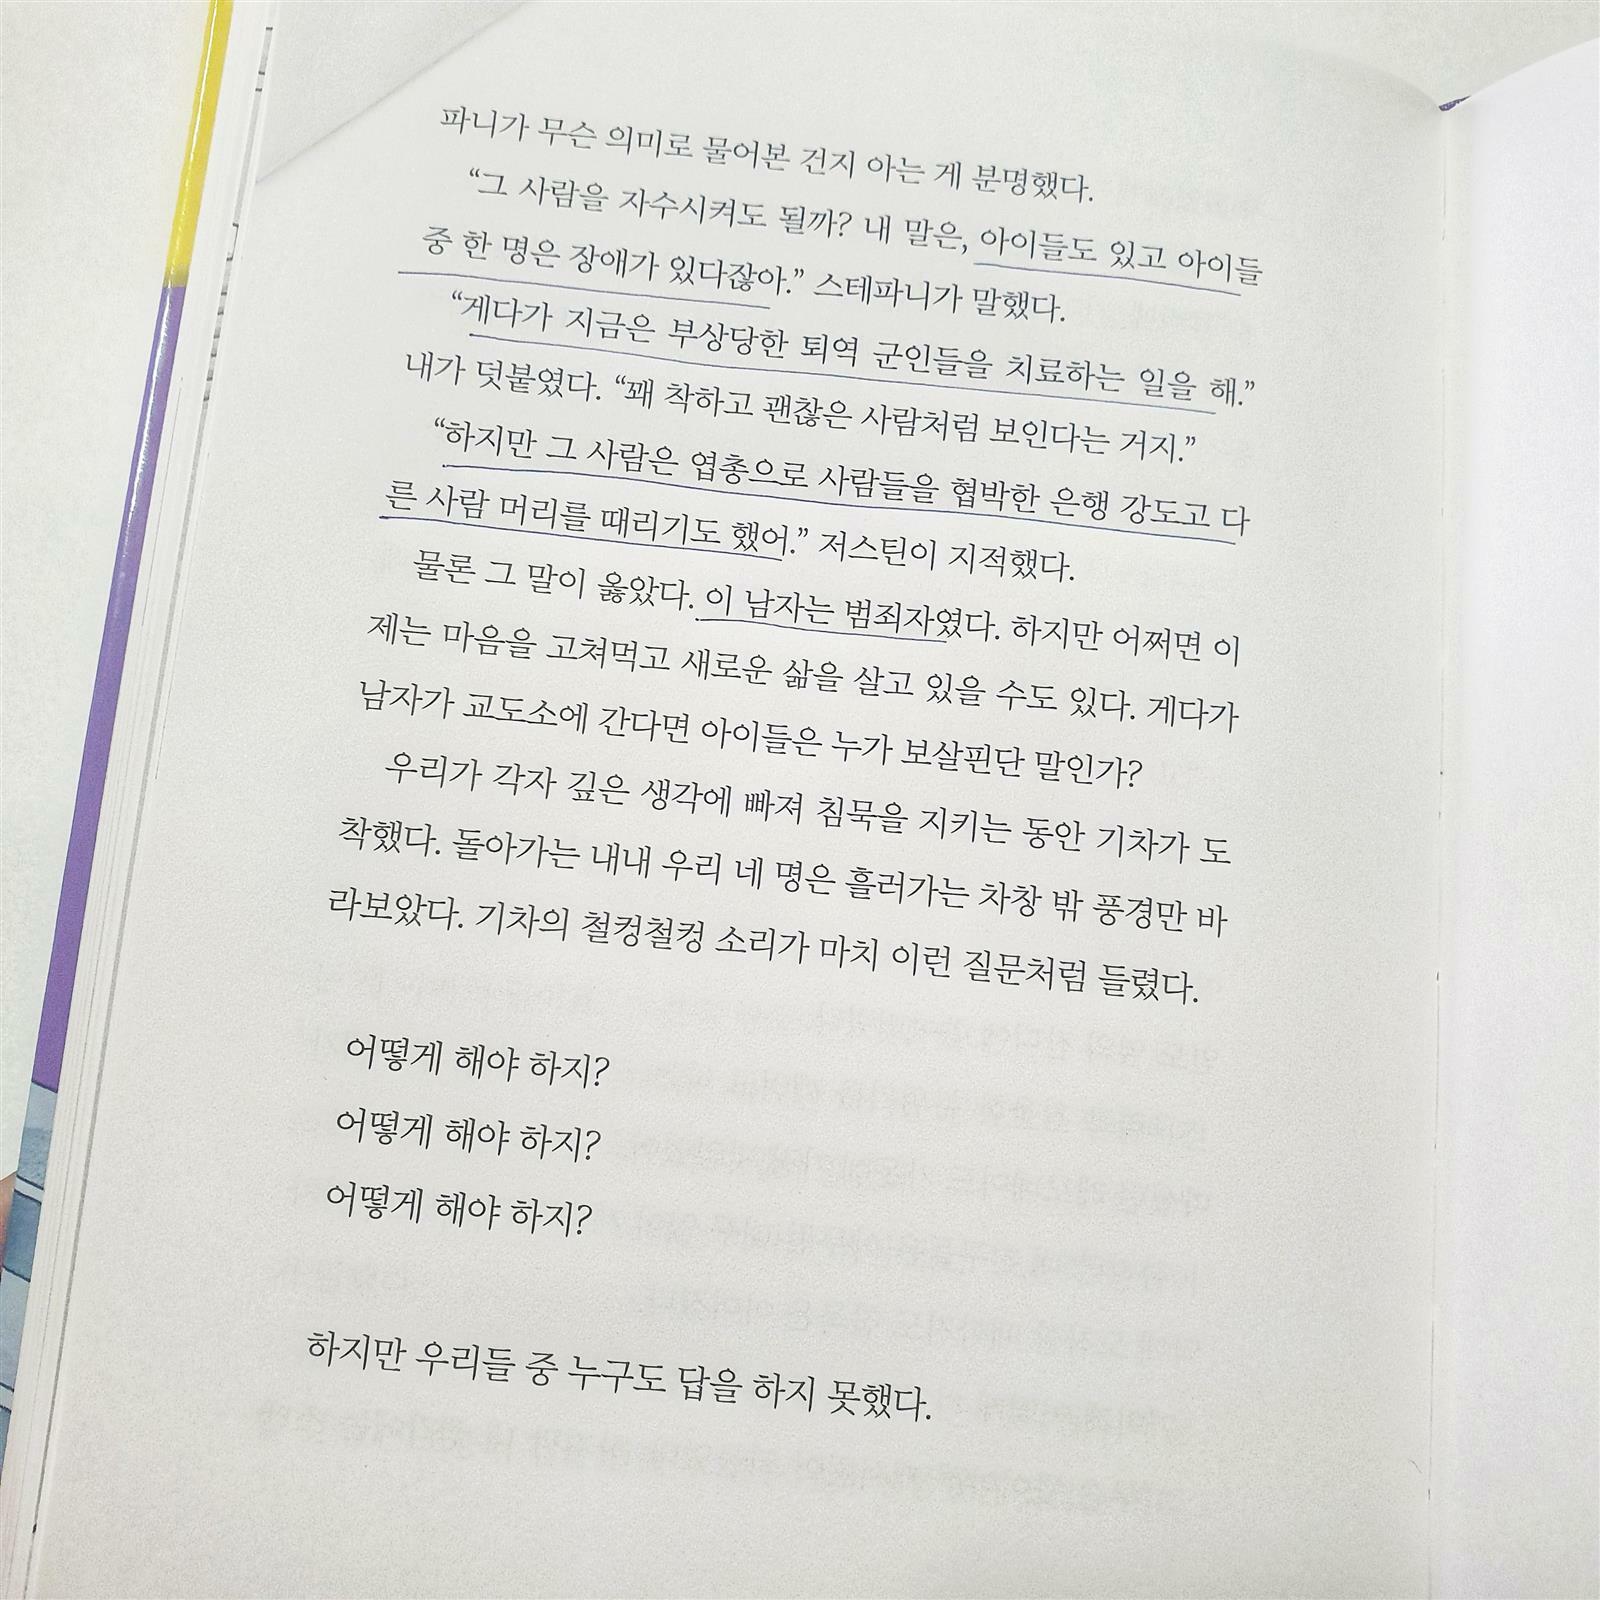 파니가 무슨 의미로 물어본 건지 아는 게 분명했다.
“그 사람을 자수시켜도 될까? 내 말은, 아이들도 있고 아이들
중 한 명은 장애가 있다잖아.” 스테파니가 말했다.
“게다가 지금은 부상당한 퇴역 군인들을 치료하는 일을 해.”
내가 덧붙였다. “꽤 착하고 괜찮은 사람처럼 보인다는 거지.”
“하지만 그 사람은 엽총으로 사람들을 협박한 은행 강도고 다
른 사람 머리를 때리기도 했어.” 저스틴이 지적했다.
물론 그 말이 옳았다. 이 남자는 범죄자였다. 하지만 어쩌면 이
제는 마음을 고쳐먹고 새로운 삶을 살고 있을 수도 있다. 게다가
남자가 교도소에 간다면 아이들은 누가 보살핀단 말인가?
우리가 각자 깊은 생각에 빠져 침묵을 지키는 동안 기차가 도
착했다. 돌아가는 내내 우리 네 명은 흘러가는 차창 밖 풍경만 바
라보았다. 기차의 철컹철컹 소리가 마치 이런 질문처럼 들렸다.
어떻게 해야 하지?
어떻게 해야 하지?
어떻게 해야 하지?
하지만 우리들 중 누구도 답을 하지 못했다.